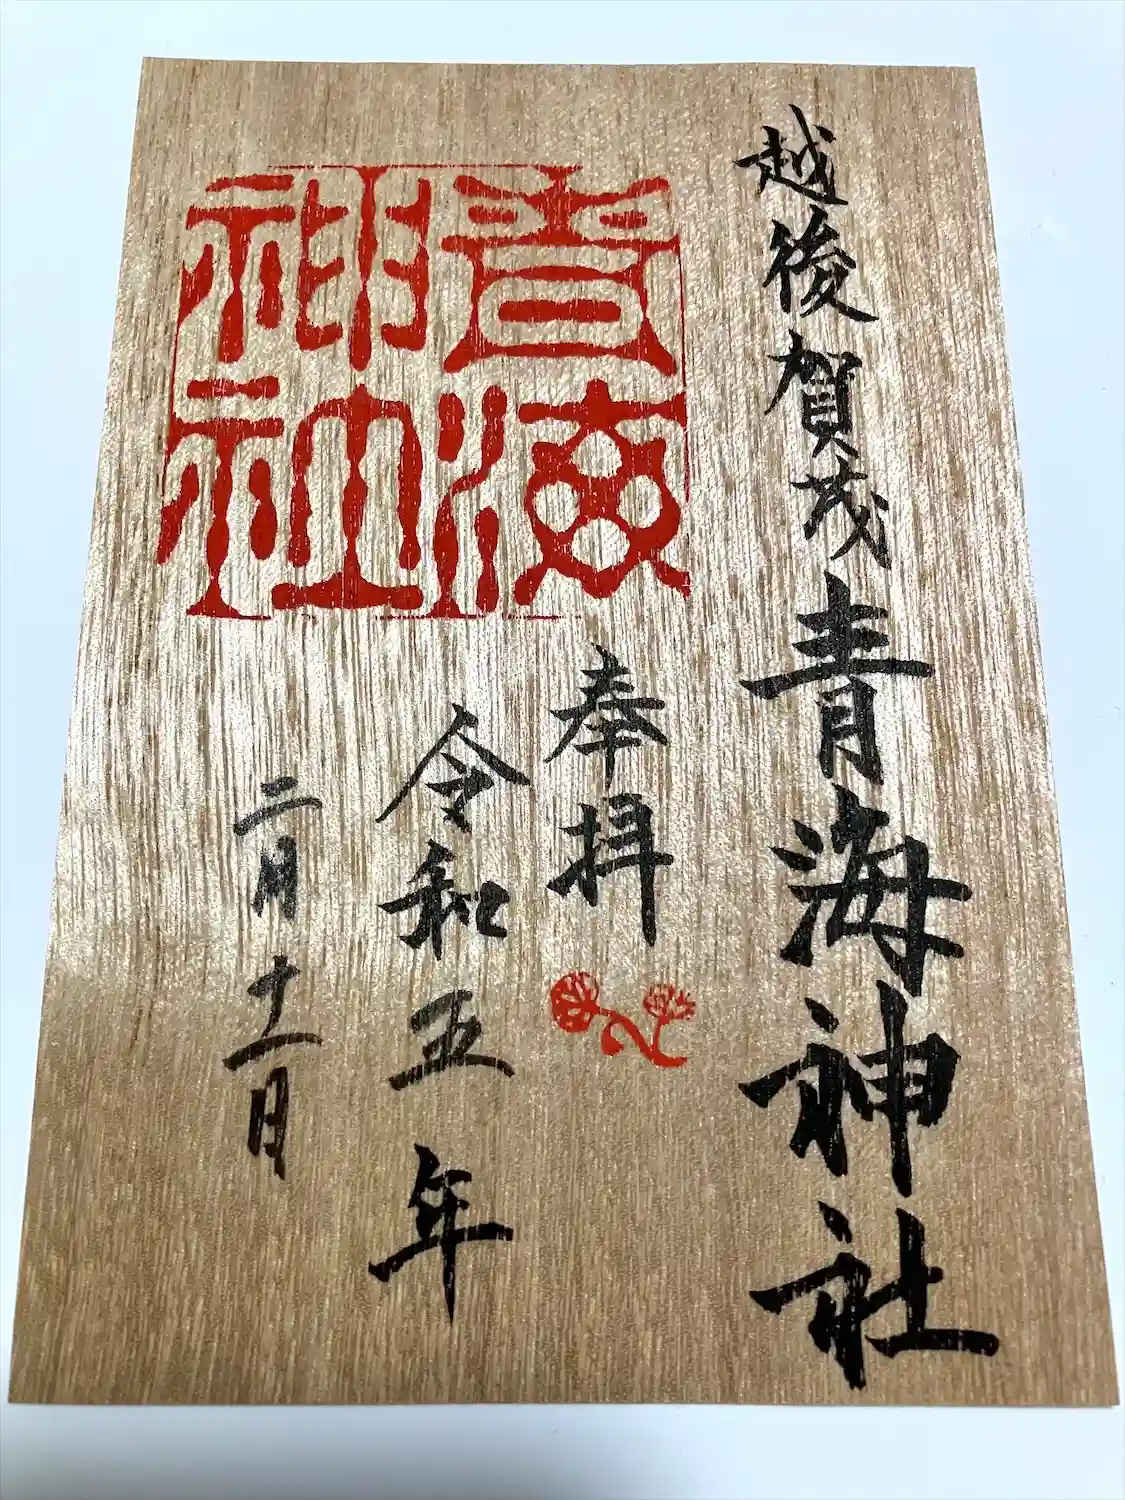 越後賀茂青海神社
奉拝
令和五年
二月十二日
青海
神社